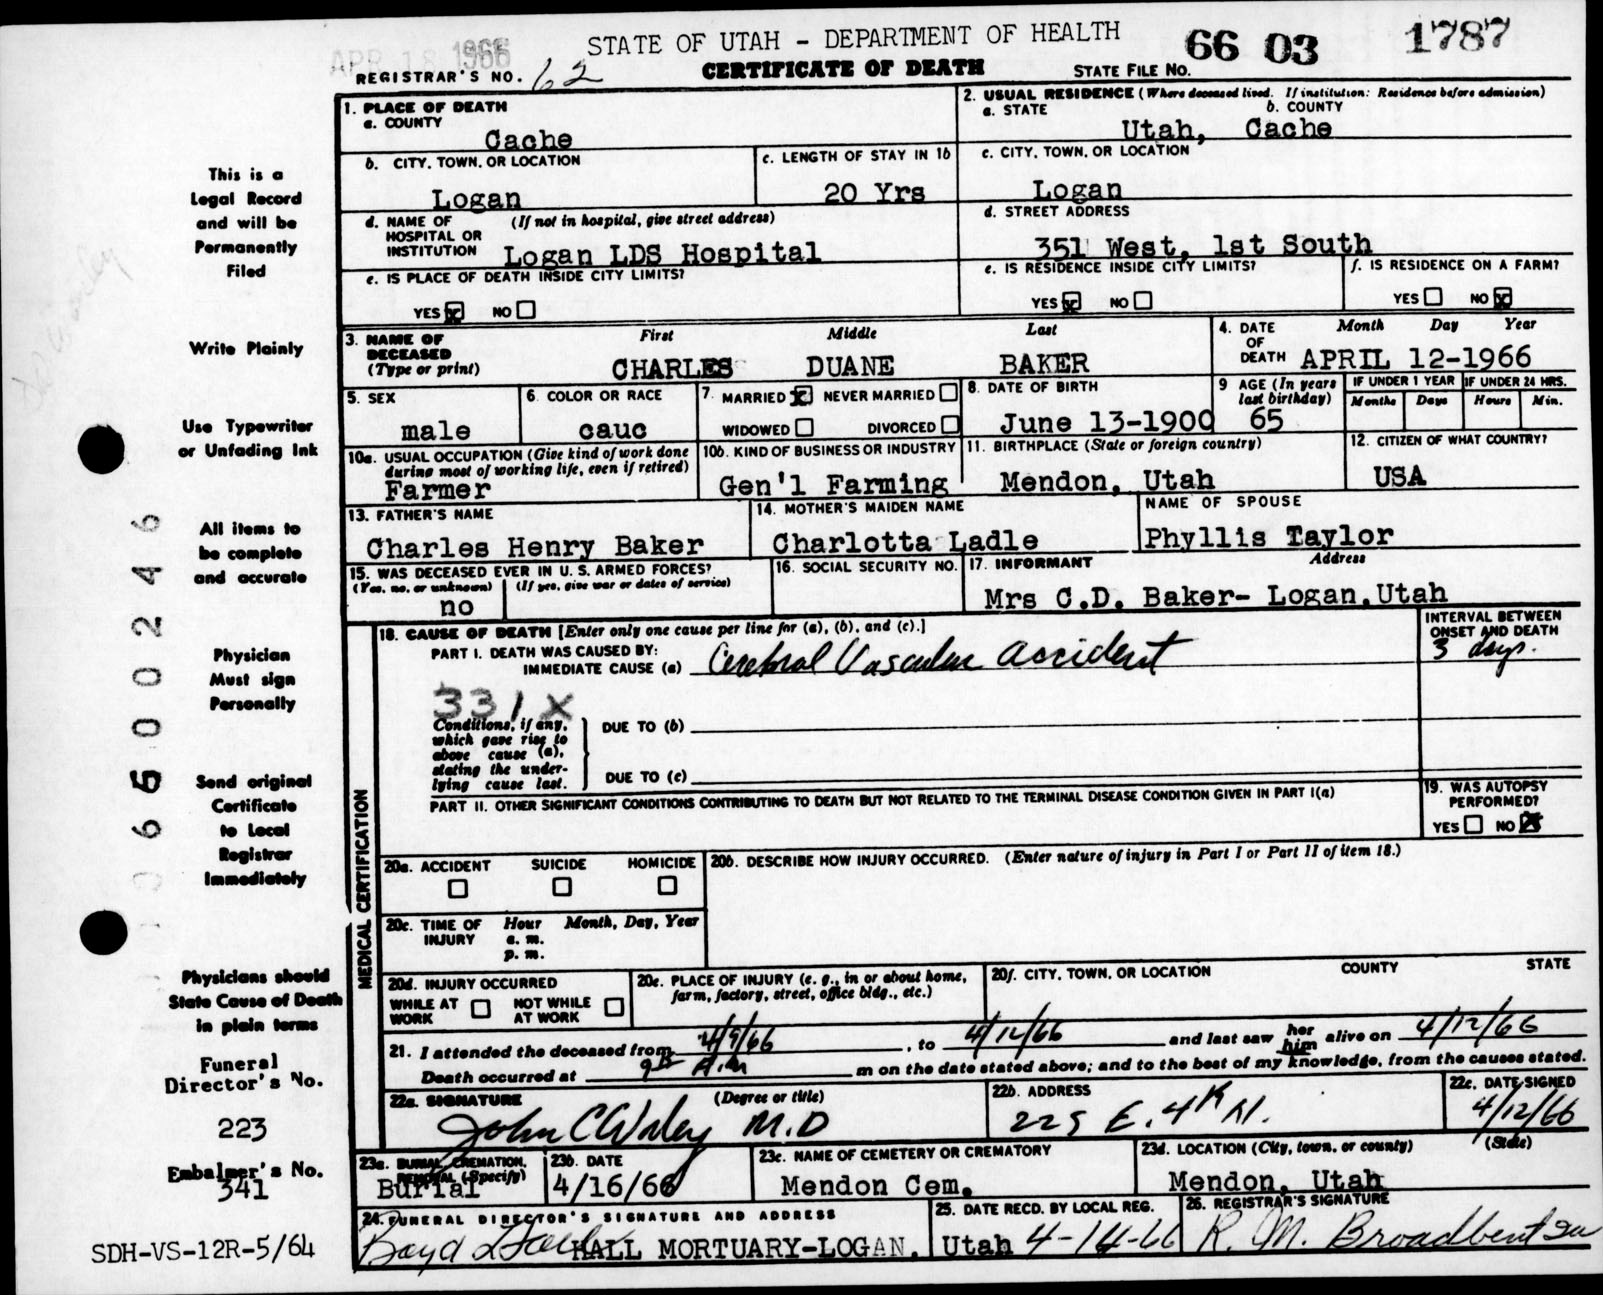 APR 18 1966
STATE OF UTAH - DEPARTMENT OF HEALTH
66 03 1787
REGISTRAR'S NO. 62
CERTIFICATE OF DEATH
STATE FILE NO.
1. PLACE OF DEATH
a. COUNTY
Cache
2. USUAL RESIDENCE (Where deceased lived. If institution: Residence before admission)
a. STATE b. COUNTY
Utah, Cache
b. CITY, TOWN, OR LOCATION
Logan
c. LENGTH OF STAY IN 1b
20 Yrs
c. CITY, TOWN, OR LOCATION
Logan
d. NAME OF HOSPITAL OR INSTITUTION (If not in hospital, give street address)
Logan LDS Hospital
d. STREET ADDRESS
351 West, 1st South
e. IS PLACE OF DEATH INSIDE CITY LIMITS?
YES x NO
e. IS RESIDENCE INSIDE CITY LIMITS?
YES x NO
f. IS RESIDENCE ON A FARM?
YES NO x
3. NAME OF DECEASED (Type or print)
First Middle Last
CHARLES DUANE BAKER
4. DATE OF DEATH
Month Day Year
APRIL 12-1966
5. SEX
male
6. COLOR OR RACE
cauc
7. MARRIED x NEVER MARRIED
WIDOWED DIVORCED
8. DATE OF BIRTH
June 13-1900
9 AGE (In years last birthday)
65
IF UNDER 1 YEAR
Months Days
IF UNDER 24 HRS.
Hours Min.
10a. USUAL OCCUPATION (Give kind of work done during most of working life, even if retired)
Farmer
10b. KIND OF BUSINESS OR INDUSTRY
Gen'l Farming
11. BIRTHPLACE (State or foreign country)
Mendon, Utah
12. CITIZEN OF WHAT COUNTRY?
USA
13. FATHER'S NAME
Charles Henry Baker
14. MOTHER'S MAIDEN NAME
Charlotta Ladle
NAME OF SPOUSE
Phyllis Taylor
15. WAS DECEASED EVER IN U. S. ARMED FORCES?
(Yes, no, or unknown) (If yes, give war or dates of service)
no
16. SOCIAL SECURITY NO.
17. INFORMANT Address
Mrs C.D. Baker- Logan,Utah
18. CAUSE OF DEATH [Enter only one cause per line for (a), (b), and (c).]
PART I. DEATH WAS CAUSED BY:
IMMEDIATE CAUSE (a) Cerebral Vascular Accident
INTERVAL BETWEEN ONSET AND DEATH
3 days.
331X
Conditions, if any, which gave rise to above cause (a), stating the underlying cause last.
DUE TO (b)
DUE TO (c)
PART II. OTHER SIGNIFICANT CONDITIONS CONTRIBUTING TO DEATH BUT NOT RELATED TO THE TERMINAL DISEASE CONDITION GIVEN IN PART I(a)
19. WAS AUTOPSY PERFORMED?
YES NO x
MEDICAL CERTIFICATION
20a. ACCIDENT SUICIDE HOMICIDE
20b. DESCRIBE HOW INJURY OCCURRED. (Enter nature of injury in Part I or Part II of item 18.)
20c. TIME OF INJURY
Hour Month, Day, Year
a. m.
p. m.
20d. INJURY OCCURRED
WHILE AT WORK NOT WHILE AT WORK
20e. PLACE OF INJURY (e. g., in or about home, farm, factory, street, office bldg., etc.)
20f. CITY, TOWN, OR LOCATION COUNTY STATE
21. I attended the deceased from 4/9/66, to 4/12/66 and last saw her him alive on 4/12/66
Death occurred at A.M m on the date stated above; and to the best of my knowledge, from the causes stated.
22a. SIGNATURE (Degree or title)
John C M.D
22b. ADDRESS
225 E. 4th N.
22c. DATE SIGNED
4/12/66
23a. BURIAL, CREMATION, REMOVAL (Specify)
Burial
23b. DATE
4/16/66
23c. NAME OF CEMETERY OR CREMATORY
Mendon Cem.
23d. LOCATION (City, town, or county) (State)
Mendon, Utah
24. FUNERAL DIRECTOR'S SIGNATURE AND ADDRESS
Boyd HALL MORTUARY-LOGAN, Utah
25. DATE RECD. BY LOCAL REG.
4-14-66
26. REGISTRAR'S SIGNATURE
R. M. Broadbent
This is a
Legal Record
and will be
Permanently
Filed
Write Plainly
Use Typewriter
or Unfading Ink
All items to
be complete
and accurate
Physician
Must sign
Personally
Send original
Certificate
to Local
Registrar
Immediately
Physicians should
State Cause of Death
in plain terms
Funeral
Director's No.
223
Embalmer's No.
341
SDH-VS-12R-5/64